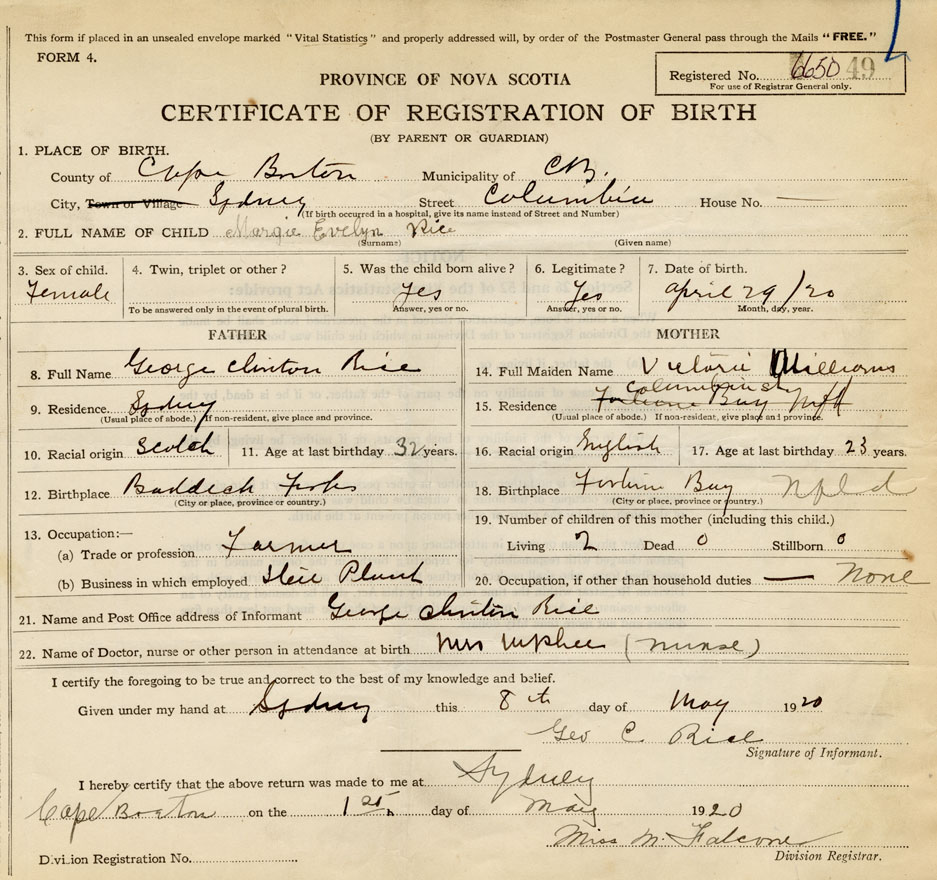 This form if placed in an unsealed envelope marked "Vital Statistics" and properly addressed will, by order of the Postmaster General pass through the Mails "FREE."
FORM 4.
Registered No. 6650 49
For use of Registrar General only.
PROVINCE OF NOVA SCOTIA
CERTIFICATE OF REGISTRATION OF BIRTH
(BY PARENT OR GUARDIAN)
1. PLACE OF BIRTH.
County of Cape Breton Municipality of C.B.
City, Town or Village Sydney Street Columbia House No.
(If birth occurred in a hospital, give its name instead of Street and Number)
2. FULL NAME OF CHILD Margie Evelyn Rice
(Surname) (Given name)
3. Sex of child. 4. Twin, triplet or other? 5. Was the child born alive? 6. Legitimate? 7. Date of birth.
Female Yes Yes April 29/20
To be answered only in the event of plural birth. Answer, yes or no. Answer, yes or no. Month, day, year.
FATHER MOTHER
8. Full Name George Clinton Rice 14. Full Maiden Name Victori Williams
9. Residence. Sydney 15. Residence Columbia St Fortune Bay Nfld
(Usual place of abode.) If non-resident, give place and province. (Usual place of abode.) If non-resident, give place and province.
10. Racial origin Scotch 11. Age at last birthday 32 years. 16. Racial origin English 17. Age at last birthday 23 years.
12. Birthplace Baddeck Forks 18. Birthplace Fortune Bay Nfld
(City or place, province or country.) (City or place, province or country.)
13. Occupation:— 19. Number of children of this mother (including this child.)
(a) Trade or profession Farmer Living 2 Dead 0 Stillborn 0
(b) Business in which employed Steel Plant 20. Occupation, if other than household duties — None
21. Name and Post Office address of Informant George Clinton Rice
22. Name of Doctor, nurse or other person in attendance at birth Mrs McPhee (nurse)
I certify the foregoing to be true and correct to the best of my knowledge and belief.
Given under my hand at Sydney this 8th day of May 1920
Geo C. Rice
Signature of Informant.
I hereby certify that the above return was made to me at Sydney
Cape Breton on the day of May 1920
Miss M. Falconer
Division Registrar.
Division Registration No.